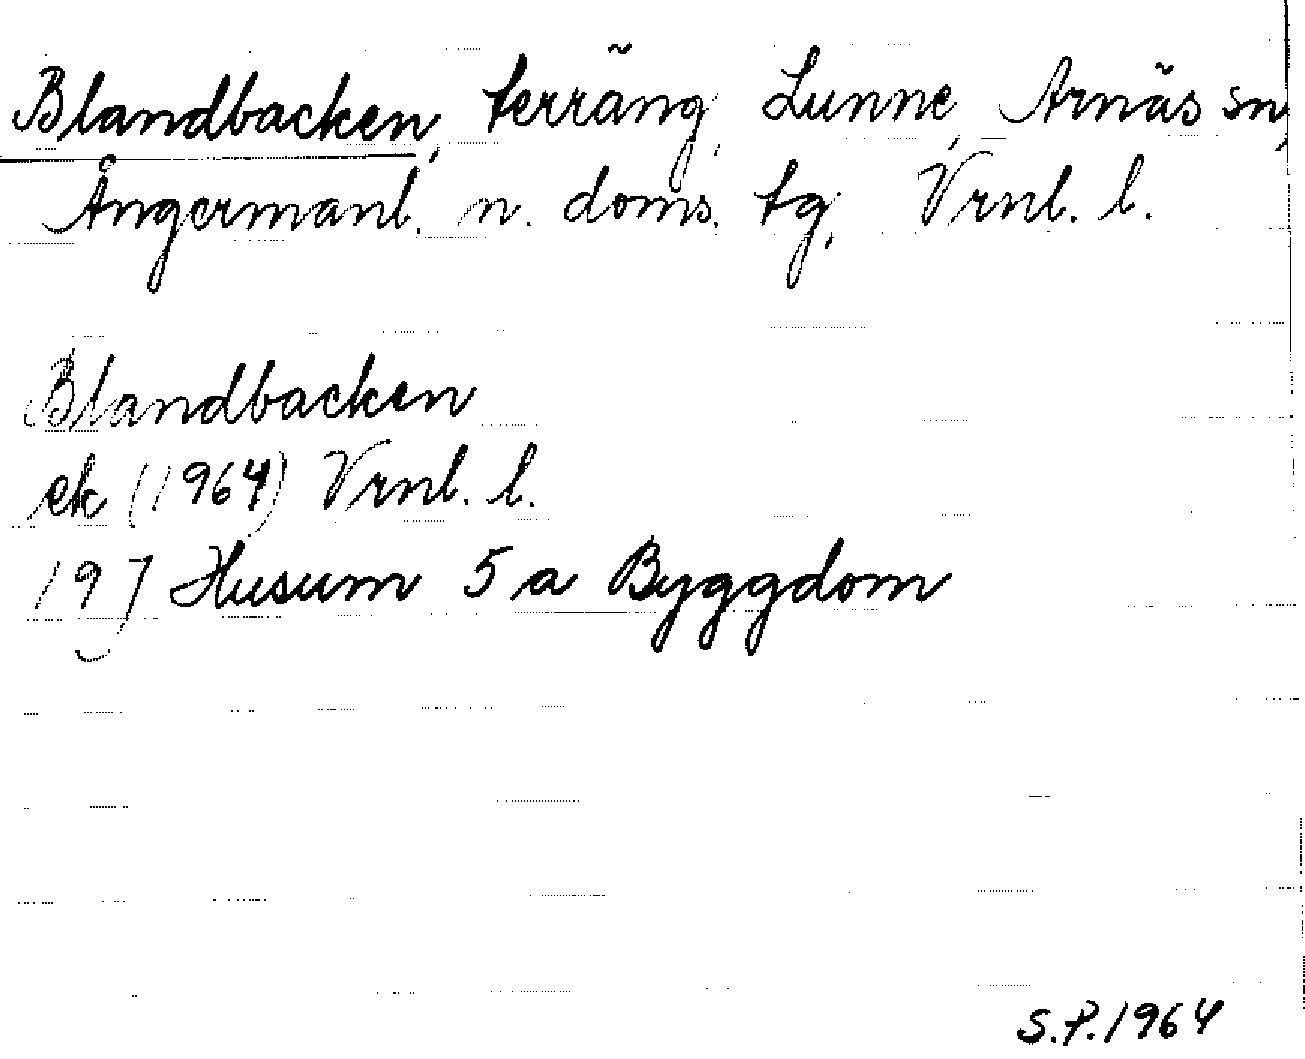 Blandbacken, terräng, Lunne, Arnäs sn,
Ångermanl. n. doms. tg, Vrnl. l.
Blandbacken
ek (1964) Vrnl. l.
19 J Husum 5 a Byggdom
S.P. 1964